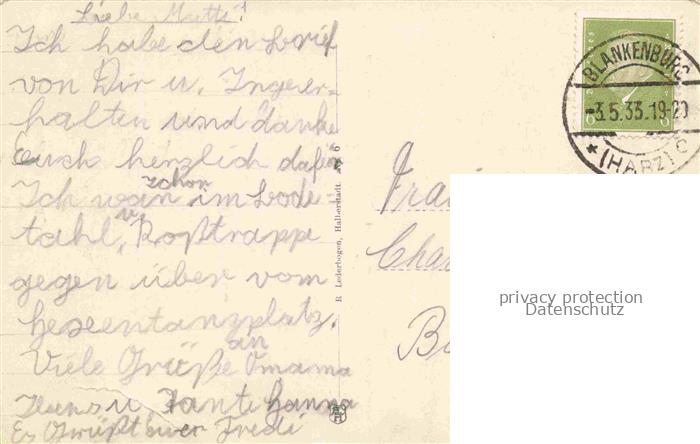 Liebe Mutti!
Ich habe den Brief
von Dir u. Inge er-
halten und danke
Euch herzlich dafür
Ich war schon im Bode-
tahl, u. Roßtrappe
gegen über vom
Hexentanzplatz.
Viele Grüße an Omama
Hans u. Tante Hanna
Es Grüßt euer Fredi
R. Lederbogen, Halberstadt
BLANKENBURG
-3.5.33.19-20
* (HARZ) C
6 6
Frau
privacy protection
Datenschutz